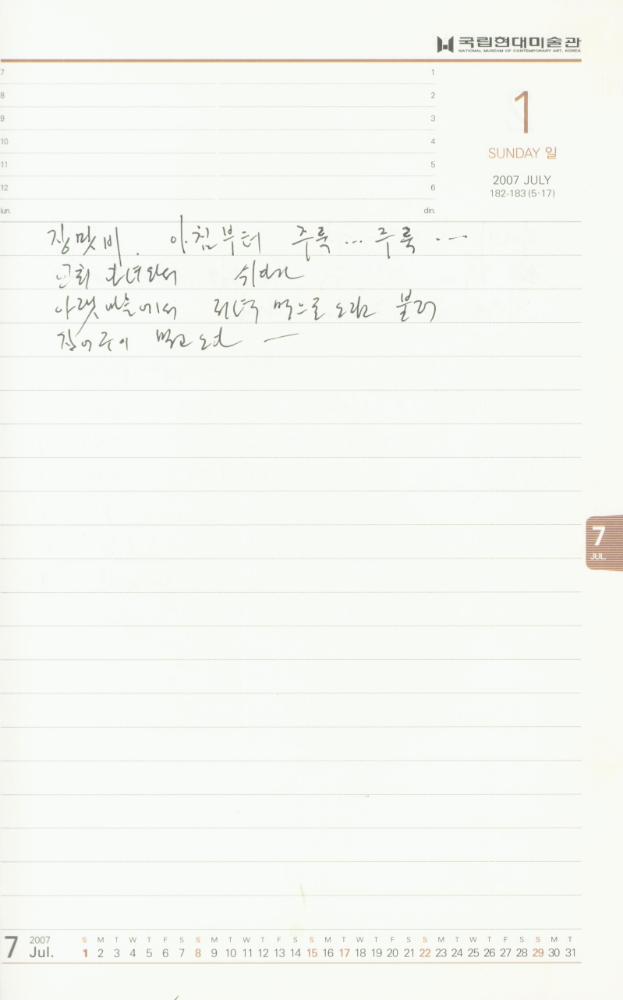 국립현대미술관
NATIONAL MUSEUM OF CONTEMPORARY ART, KOREA
7 1
8 2
9 3
10 4
11 5
12 6
lun. din.
1
SUNDAY 일
2007 JULY
182-183 (5·17)
장맛비. 아침부터 주룩 ... 주룩 ...
교회 다녀와서 쉬다가
아랫마을에서 저녁 먹으로 오라고 불러
장어구이 먹고 오다 —
7
JUL.
7 2007 Jul.
S M T W T F S S M T W T F S S M T W T F S S M T W T F S S M T
1 2 3 4 5 6 7 8 9 10 11 12 13 14 15 16 17 18 19 20 21 22 23 24 25 26 27 28 29 30 31